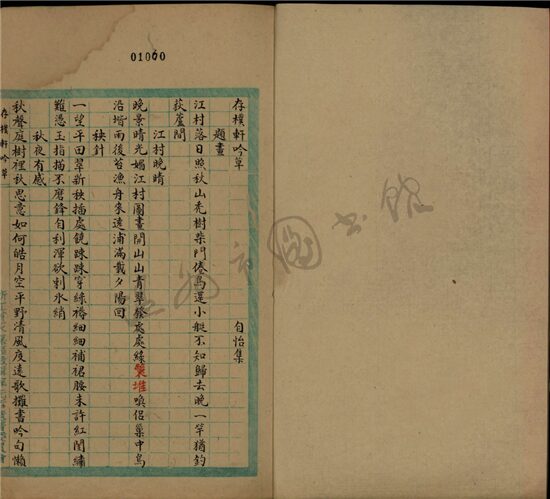 01060
存樸軒吟草
自怡集
題畫
江村落日照秋山禿樹柴門倦鳥還小艇不知歸去晚一竿猶釣
荻蘆間
江村晚晴
晚景晴光媚江村圖畫開山山青翠發處處綠雲堆喚侶巢中鳥
沿堦雨後苔漁舟來遠浦滿載夕陽回
秧針
一望平田翠新秧插處饒踈踈穿綠褥細細補裙腰未許紅閨繡
難憑玉指描不磨鋒自利渾欲刺氷綃
秋夜有感
秋聲庭樹裡秋思意如何皓月空平野清風度遠歌攤書吟句懶
存樸軒吟草